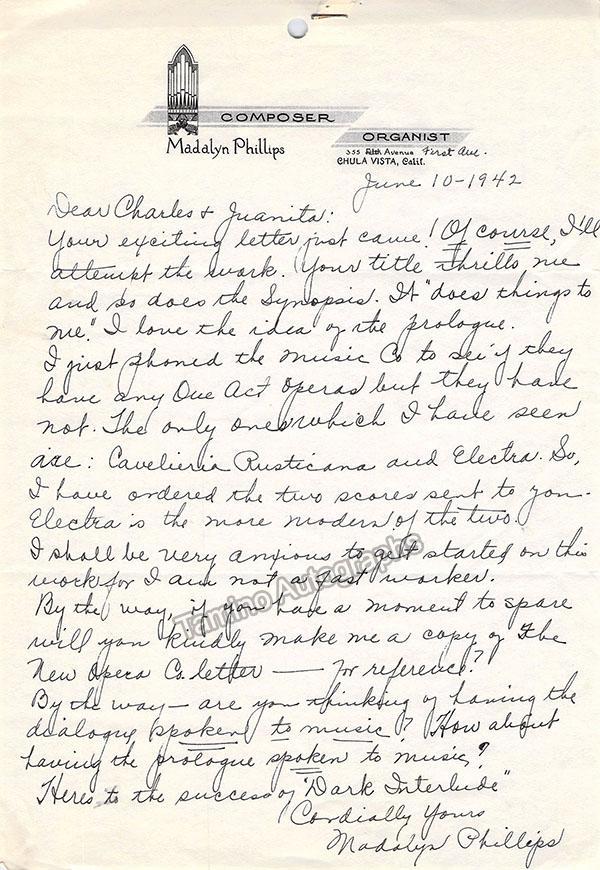 COMPOSER
ORGANIST
Madalyn Phillips
355 Fifth Avenue First Ave.
CHULA VISTA, Calif.
June 10-1942
Dear Charles & Juanita:
Your exciting letter just came! Of course, I'll
attempt the work. Your title thrills me
and so does the Synopsis. It "does things to
me." I love the idea of the prologue.
I just phoned the Music Co to see if they
have any One Act Operas but they have
not. The only ones which I have seen
are: Cavelieria Rusticana and Electra. So,
I have ordered the two scores sent to you.
Electra is the more modern of the two.
I shall be very anxious to get started on this
work for I am not a fast worker.
By the way, if you have a moment to spare
will you kindly make me a copy of The
New Opera Co. letter — for reference?
By the way — are you thinking of having the
dialogue spoken to music? How about
having the prologue spoken to music?
Heres to the success of "Dark Interlude"
Cordially Yours
Madalyn Phillips
Tamino Autographs